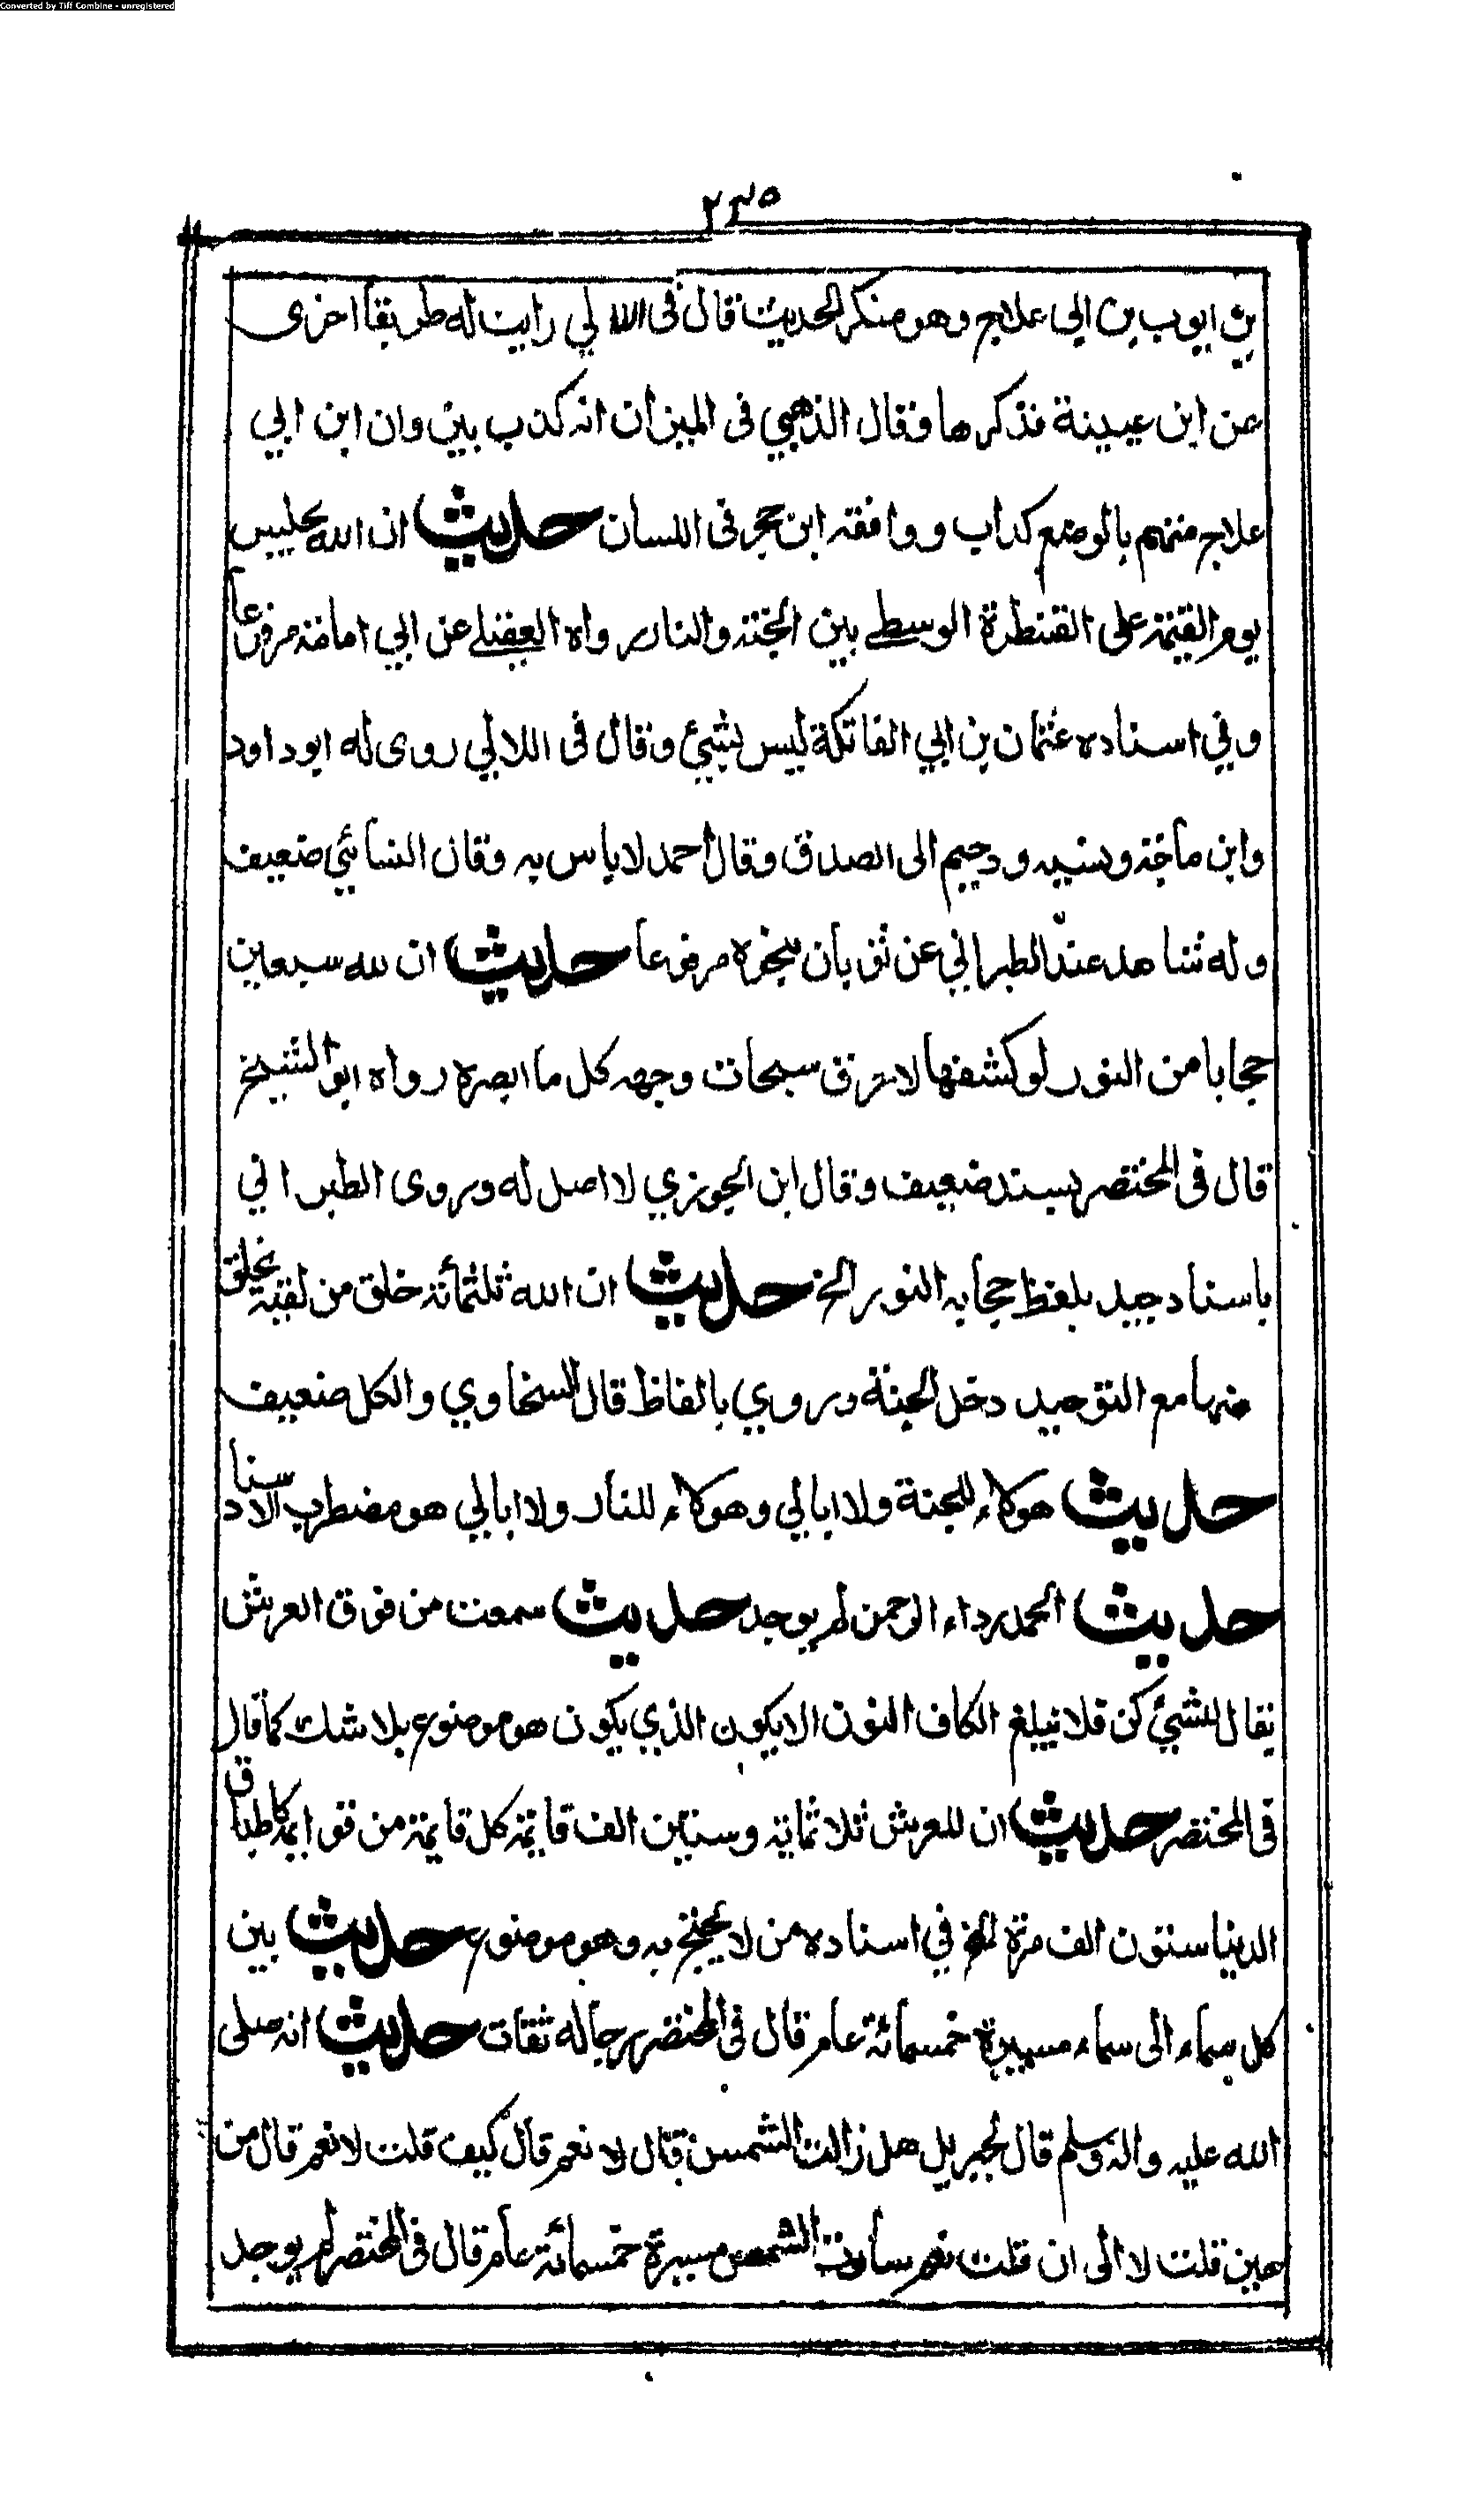 Converted by Tiff Combine - unregistered
٢٣٥
بن ايوب بن ابى علاج وهو منكر الحديث قال فى اللالي رايت له طريقا اخرى
عن ابن عيينة فذكرها وقال الذهبي فى الميزان انه كذب بين وان ابن ابي
علاج متهم بالوضع كذاب ووافقه ابن حجر فى اللسان حديث ان الله يجلس
يوم القيمة على القنطرة الوسطى بين الجنة والنار رواه العقيلى عن ابي امامة مرفوعا
وفي اسناده عثمان بن ابي العاتكة ليس بشيئ وقال فى اللالي روى له ابوداود
وابن ماجة ونسبه دحيم الى الصدق وقال احمد لاباس به وقال النسائي ضعيف
وله شاهد عند الطبراني عن ثوبان بنحوه مرفوعا حديث ان لله سبعين
حجابا من النور لو كشفها لاحرقت سبحات وجهه كل ما ابصره رواه ابو الشيخ
قال فى المختصر بسند ضعيف وقال ابن الجوزي لا اصل له وروى الطبراني
باسناد جيد بلفظ حجابه النور الخ حديث ان الله ثلثمائة خلق من لقيه بخلق
منها مع التوحيد دخل الجنة وروي بالفاظ قال السخاوي والكل ضعيف
حديث هوكاء للجنة ولا ابالي وهوكاء للنار ولا ابالي هو مضطرب الاسناد
حديث الحمد رداء الرحمن لم يوجد حديث سمعت من فوق العرش
يقال للشيئ كن فلا تبلغ الكاف النون الا يكون الذي يكون هو موضوع بلا شك كما قال
فى المختصر حديث ان للعرش ثلاثماية وستين الف قايمة كل قايمة من قوايمه كاطباق
الدينا ستون الف مرة الخ في اسناده من لا يحتج به وهو موضوع حديث بين
كل سماء الى سماء مسيرة خمسمائة عام قال فى المختصر رجاله ثقات حديث انه صلى
الله عليه واله وسلم قال لجبريل هل زالت الشمس قال لا نعم قال كيف قلت لا نعم قال من
حين قلت لا الى ان قلت نعم سارت الشمس مسيرة خمسمائة عام قال فى المختصر لم يوجد